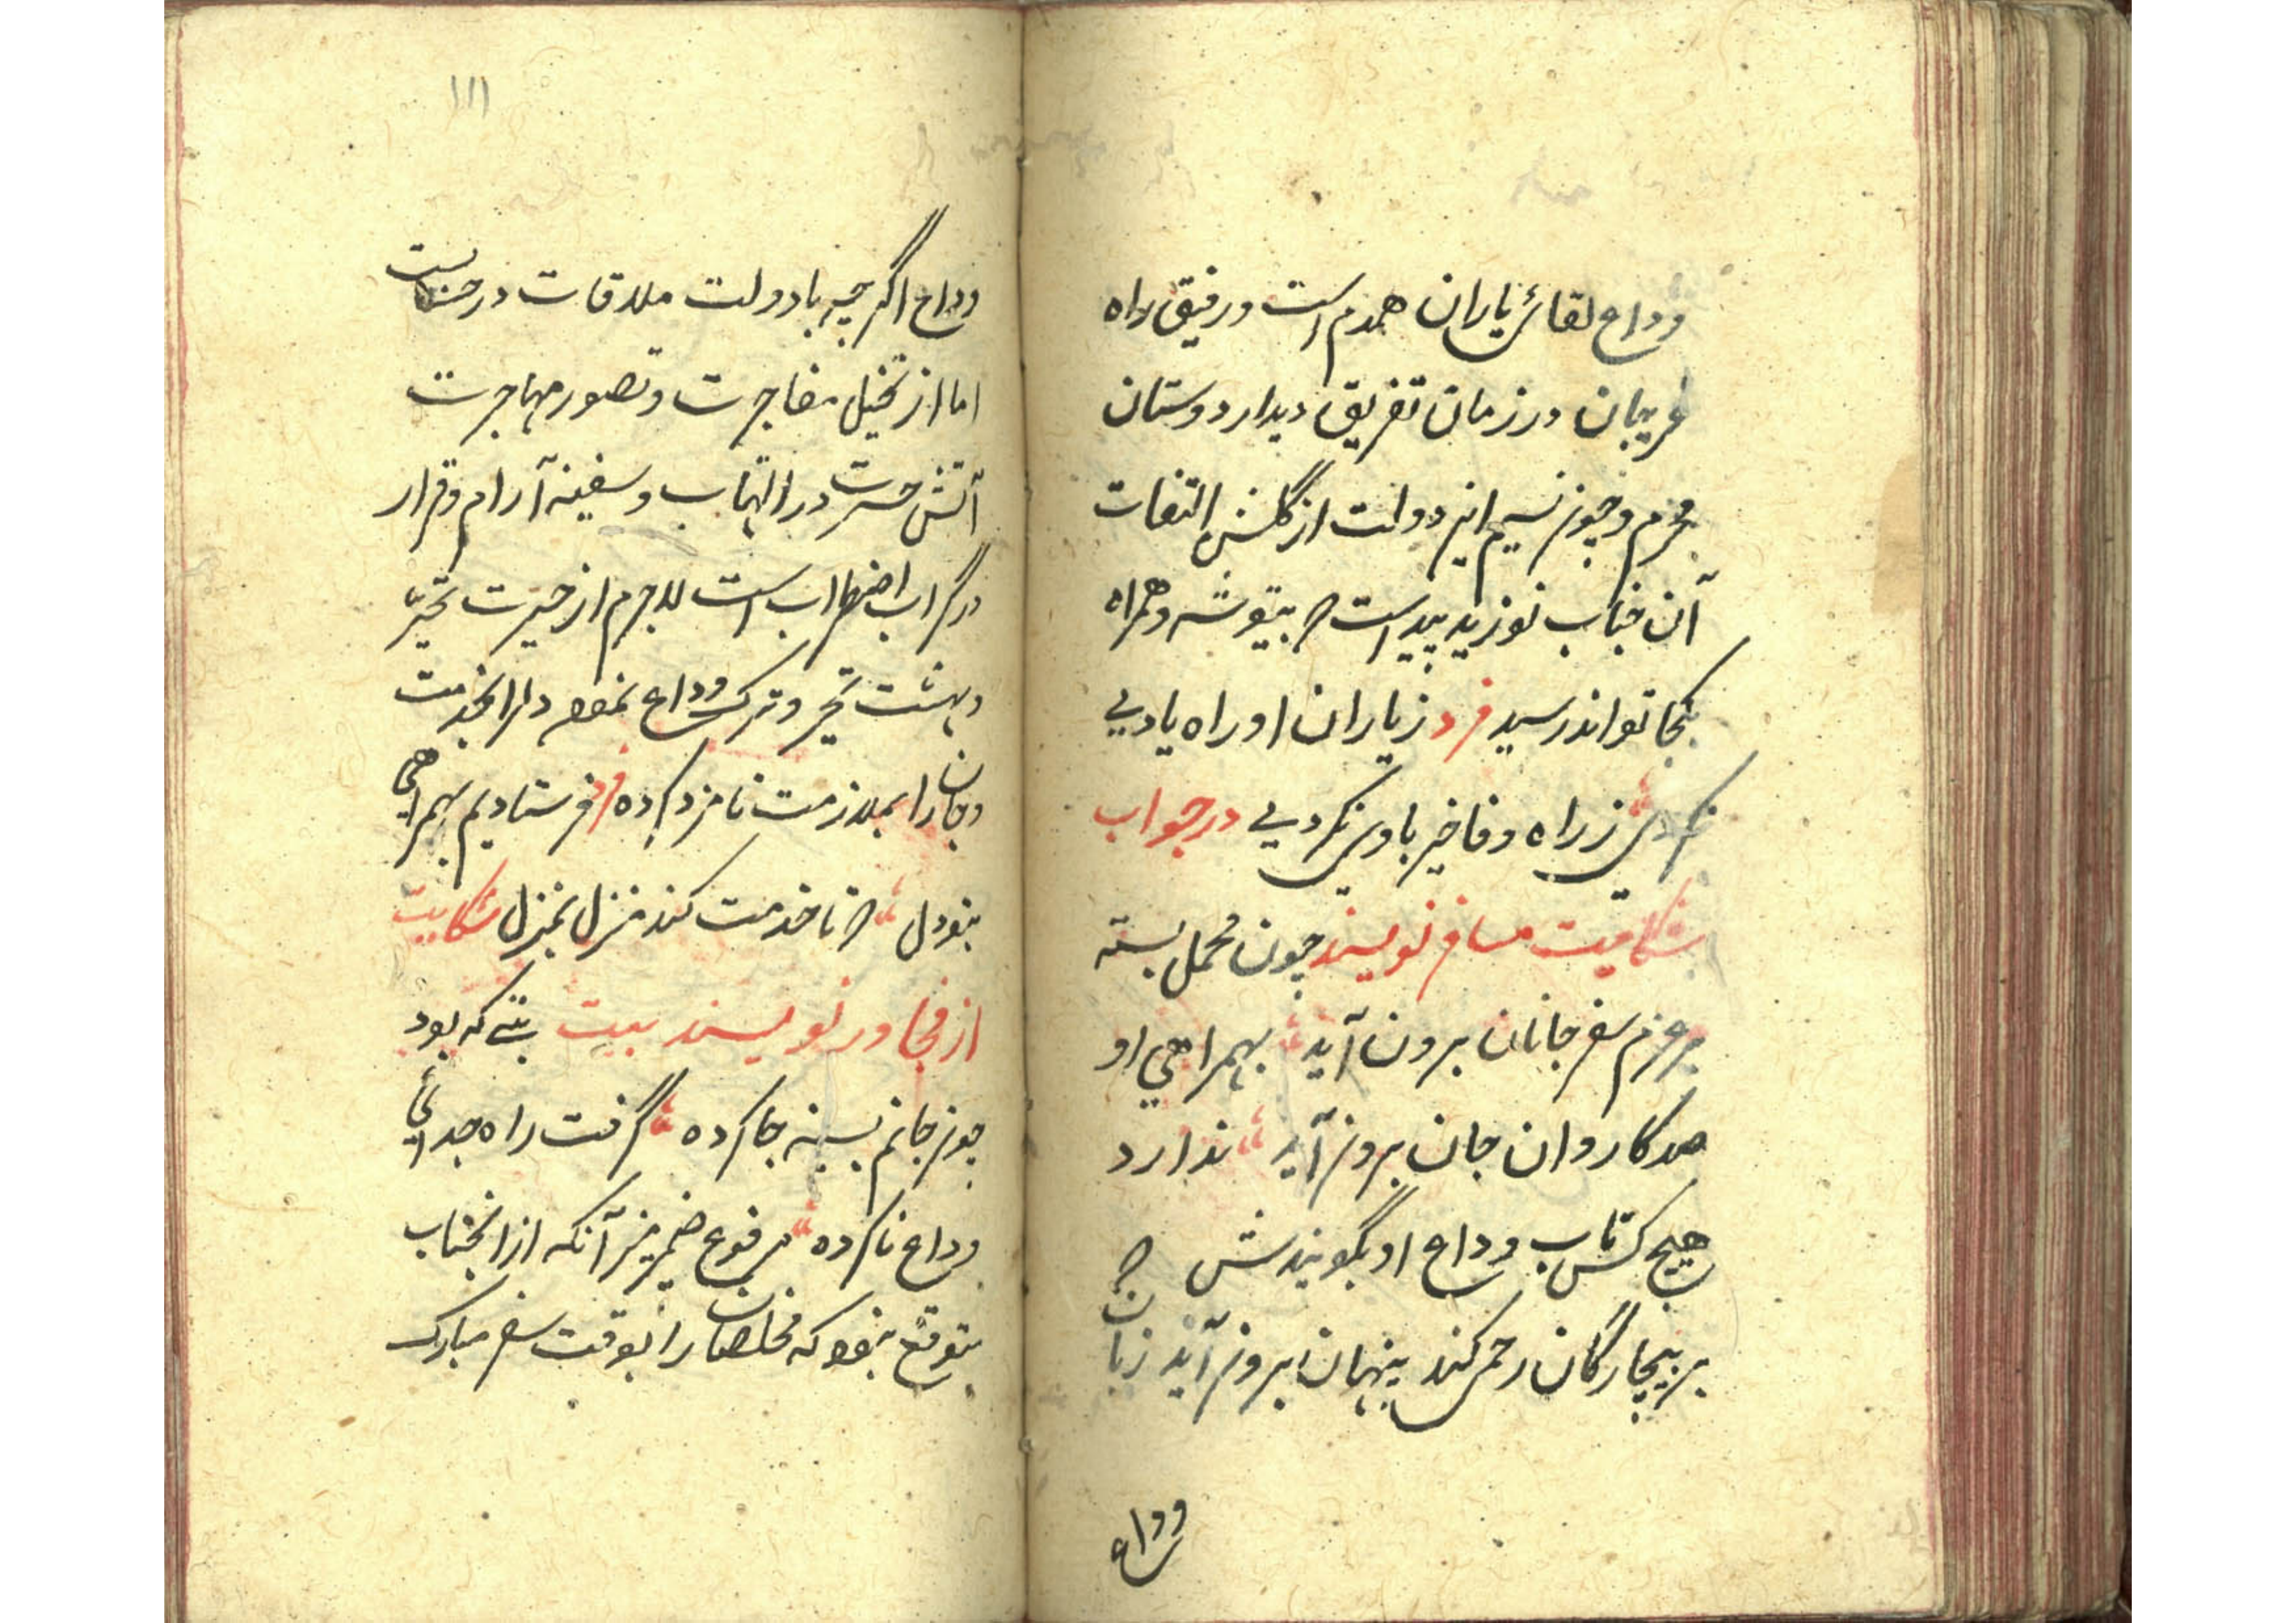 وداع لقائ یاران همدم است و رفیق راه
غریبان در زمان تفریق دیدار دوستان
محرم و چون نسیم این دولت از گلشن التفات
آن جناب نوزید پیداست که بتوشه و همراه
بکجا تواند رسید فرد ز یاران او راه یادیی
نکردی ز راه وفا خیربادیی نکردیی در جواب
شکایت مسافر نویسند چون محمل بسته
بر عزم سفر جانان برون آید بهمراهی او
صد کاروان جان برون آید ندارد
هیچ کس تاب وداع او بگویندش که
بر بیچارگان رحمی کند پنهان برون آید زبان
وداع
۱۱۱
وداع اگر چه با دولت ملاقات در
اما از تخیل مفاجرت و تصور مهاجرت
آتش حسرت در التهاب و سفینه آرام و قرار
در گرداب اضطراب است لاجرم از حیرت تحیّر
دهشت تحیر و ترک وداع نموده دل را بخدمت
و جان را بملازمت نامزد کرده فرد فرستادیم بهمراهی
بتو دل که تا خدمت کند منزل بمنزل شکایت
از مجاور نویسند بیت بتی که بود
چون جانم بسینه جا کرده گرفت راه جدائی
وداع ناکرده مرفوع ضمیر منیر آنکه از انجناب
متوقع نبود که مخلصان را بوقت سفر مبارک